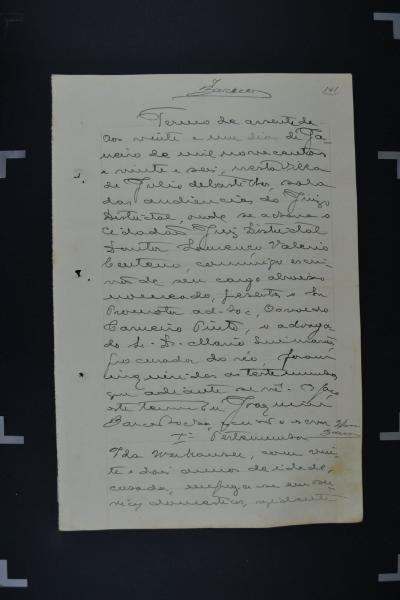 Barcellos
161
Termo de assentada
Aos vinte e um dias de Ja-
neiro de mil novecentos
e vinte e seis, nesta Villa
de Julio de Castilhos, sala
das audiencias do Juizo
Districtal, onde se achava o
Cidadão Juiz Districtal
Doutor Lourenço Valerio
Caetano, commigo escri-
vão de seu cargo abaixo
nomeado, presentes o
Promotor ad-hoc, Oswaldo
Carneiro Pinto, o advoga-
do Dr. Mario Guimarães,
procurador do réo, foram
inqueridas as testemunhas
que adiante se vê. Do que faço
este termo. Eu Joaquim
Barcellos escrivão o escrevi
1ª Testemunha
Ida com vin-
te e dois annos de idade,
casada, emprega-se em ser-
viços domesticos, residente